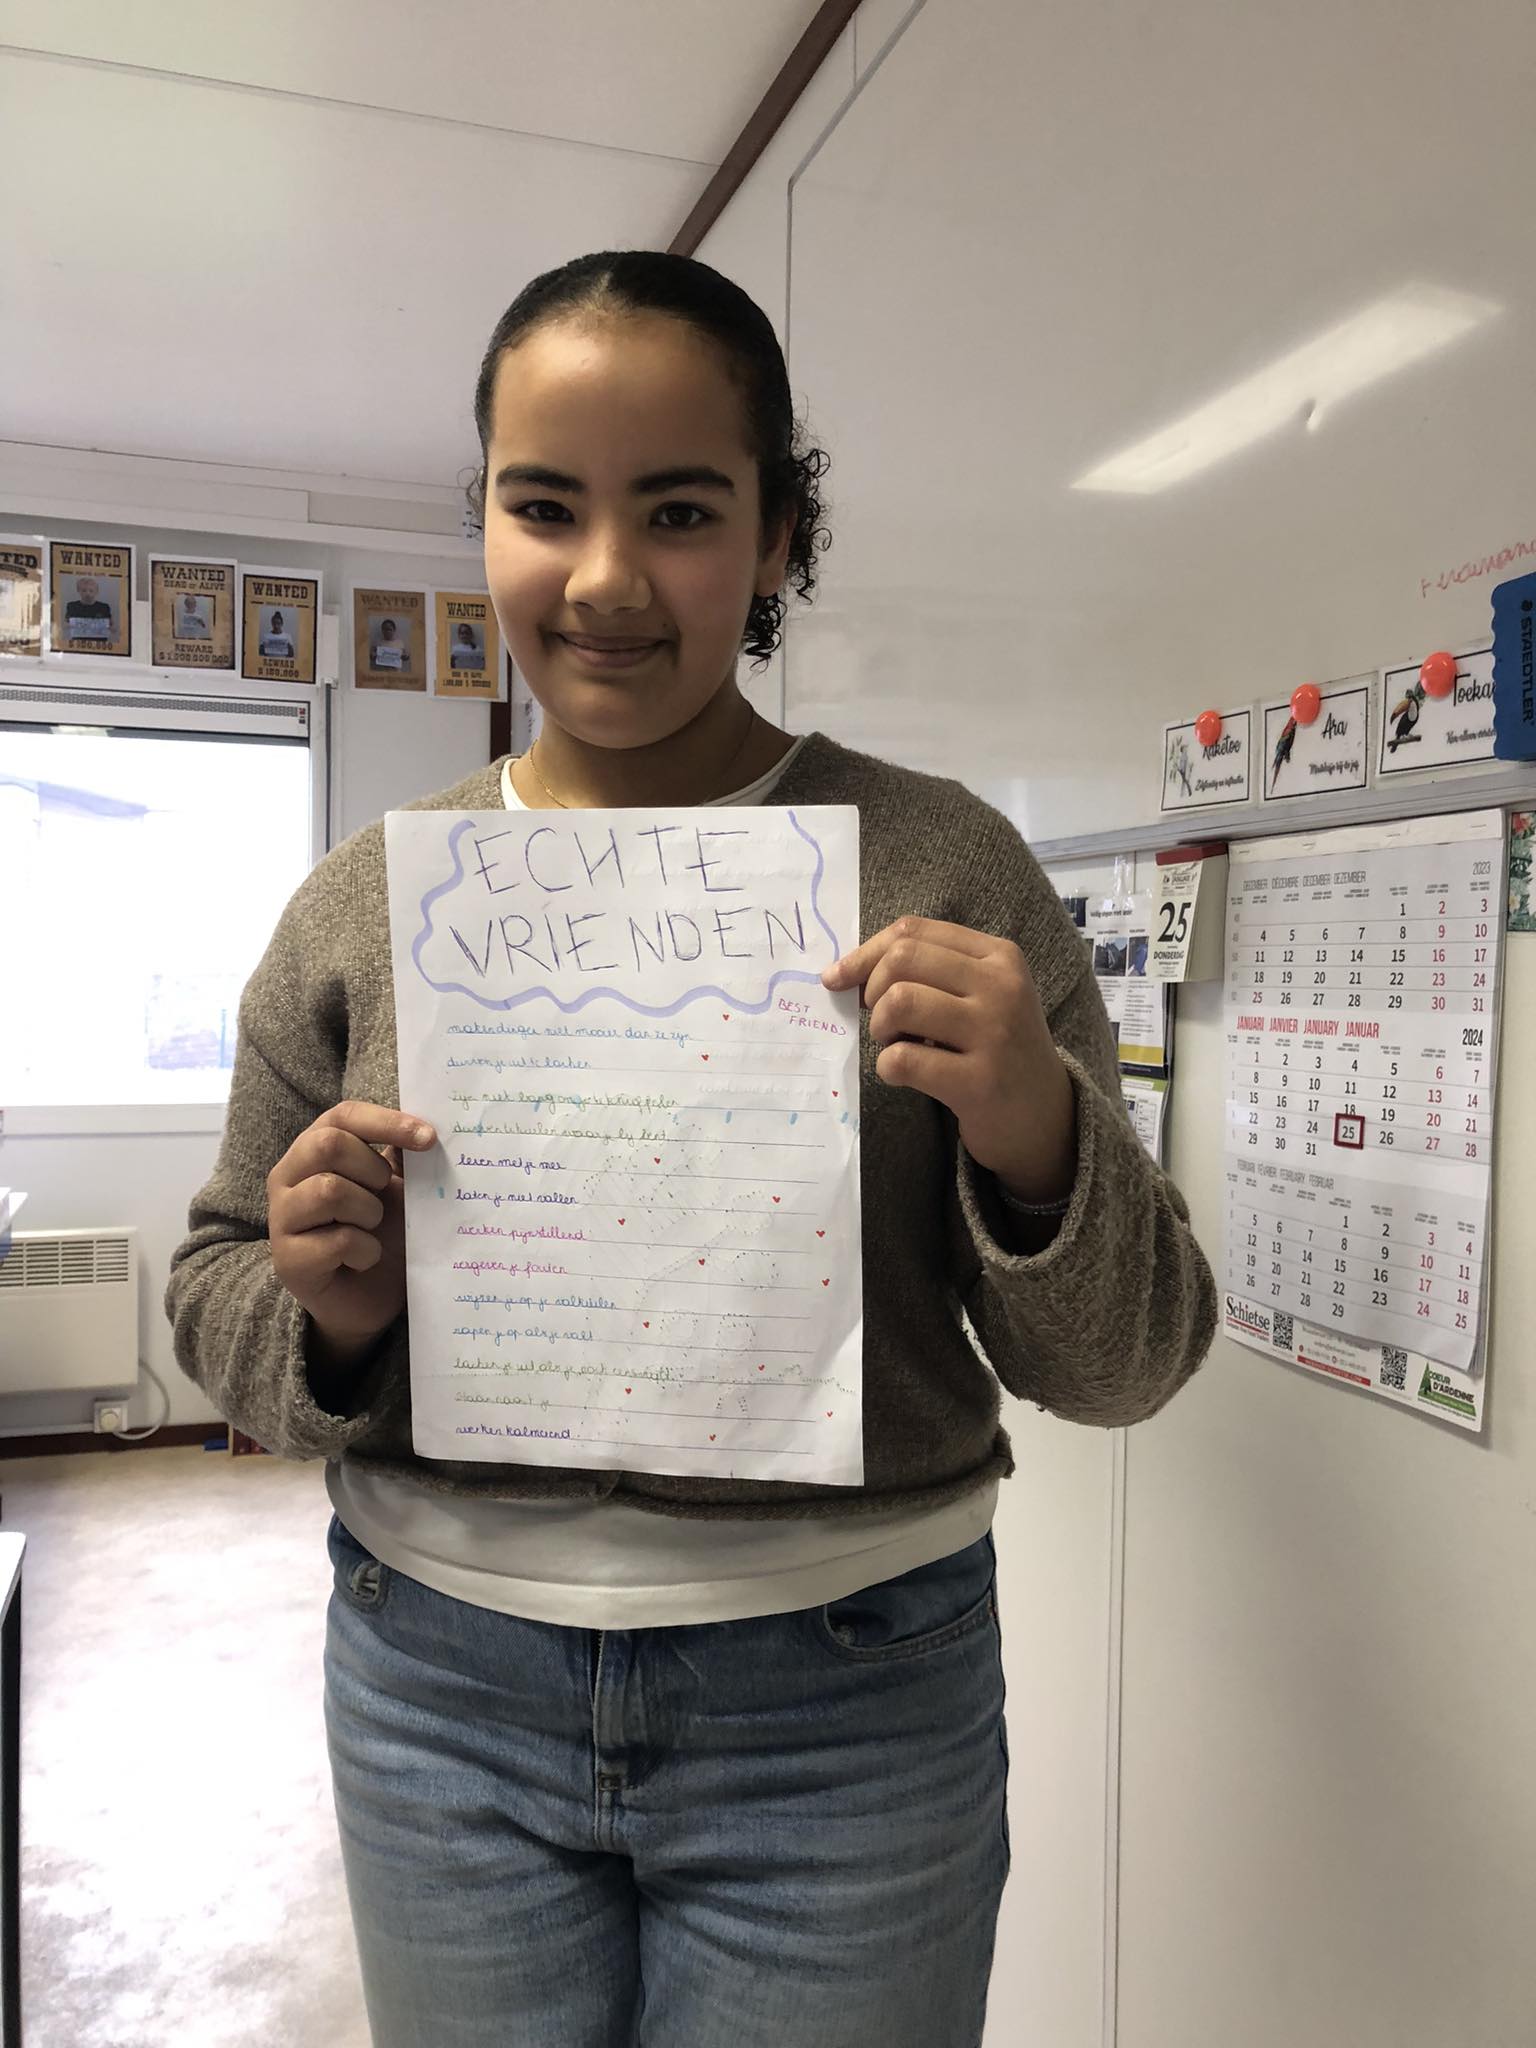 ECHTE
VRIENDEN
BEST
FRIENDS
maken dingen niet mooier dan ze zijn
durven je uit te lachen
zijn niet bang om je te knuffelen
durven te huilen waar je bij bent
leven met je mee
laten je niet vallen
werken pijnstillend
vergeven je fouten
wijzen je op je valkuilen
rapen je op als je valt
lachen je uit als je ook eens
staan naast je
werken kalmerend
WANTED
WANTED
$ 100,000
WANTED
DEAD or ALIVE
REWARD
$ 1.000.000.000
WANTED
REWARD
$ 100,000
WANTED
WANTED
STAEDTLER
Kaketoe
Ara
Toekan
25
DONDERDAG
DECEMBER DÉCEMBRE DECEMBER DEZEMBER 2023
1 2 3
4 5 6 7 8 9 10
11 12 13 14 15 16 17
18 19 20 21 22 23 24
25 26 27 28 29 30 31
JANUARI JANVIER JANUARY JANUAR 2024
1 2 3 4 5 6 7
8 9 10 11 12 13 14
15 16 17 18 19 20 21
22 23 24 25 26 27 28
29 30 31
FEBRUARI FÉVRIER FEBRUARY FEBRUAR
1 2 3 4
5 6 7 8 9 10 11
12 13 14 15 16 17 18
19 20 21 22 23 24 25
26 27 28 29
Schietse
COEUR
D'ARDENNE